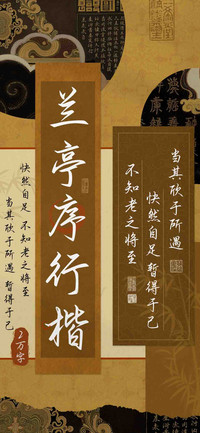 兰亭序行楷
当其欣于所遇
快然自足 暂得于己
不知老之将至
快然自足 不知老之将至
当其欣于所遇 暂得于己
2万字